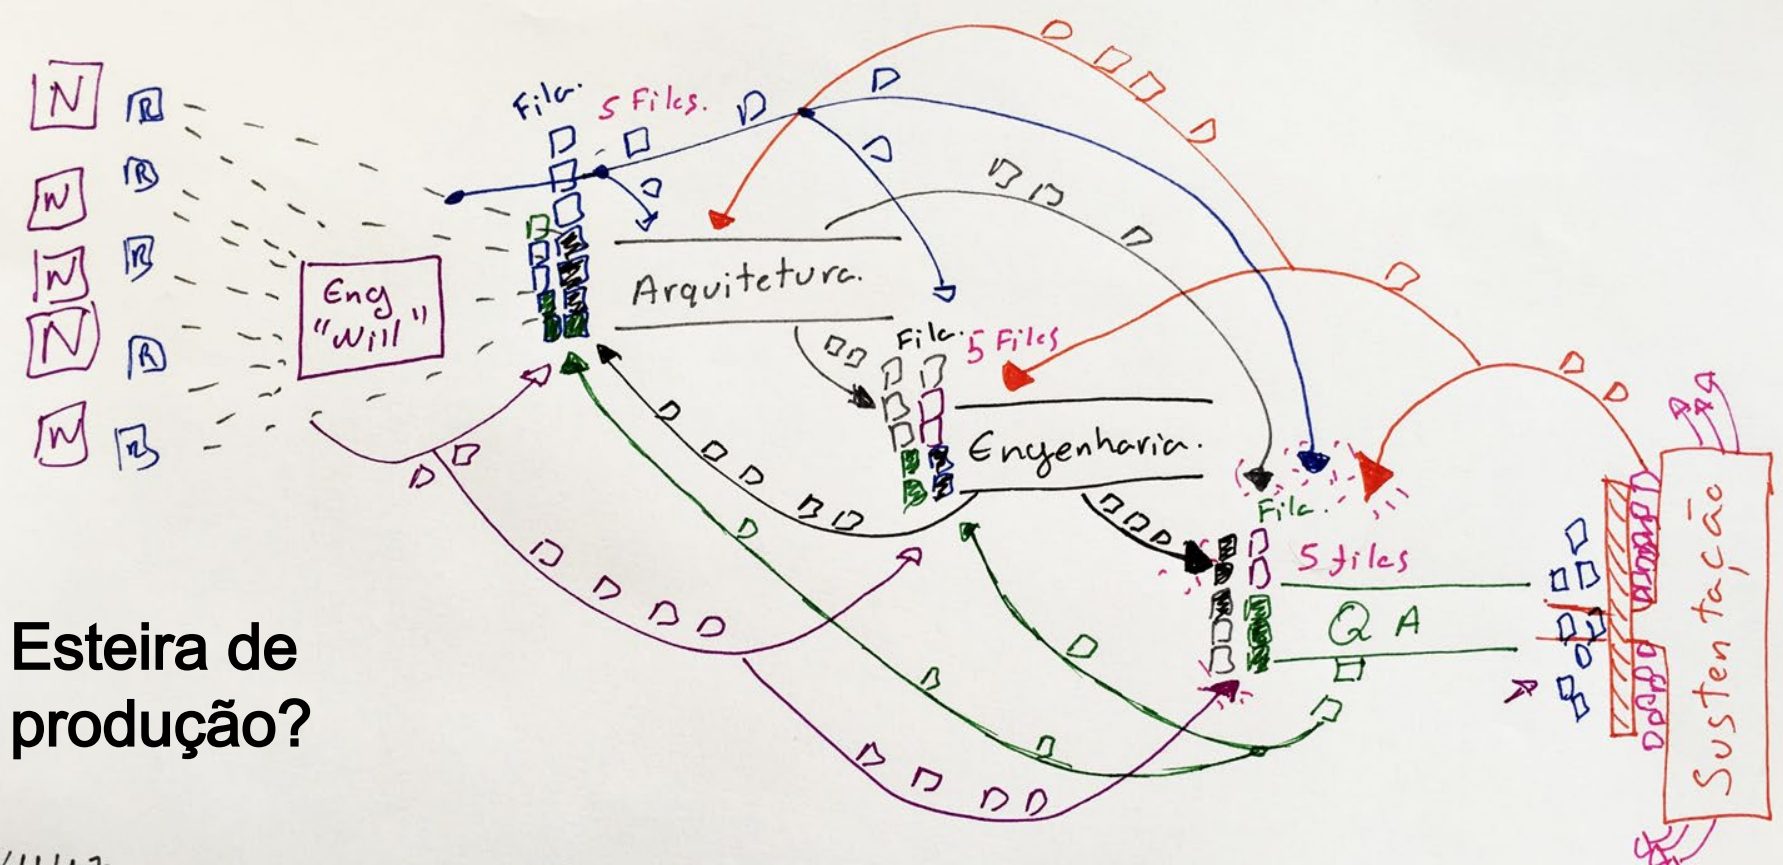 N
R
N
R
N
R
N
R
N
R
Eng
"Will"
Fila.
5 Filas.
Arquitetura.
Fila.
5 Filas
Engenharia.
Fila.
5 filas
Q A
Sustentação
Esteira de
produção?